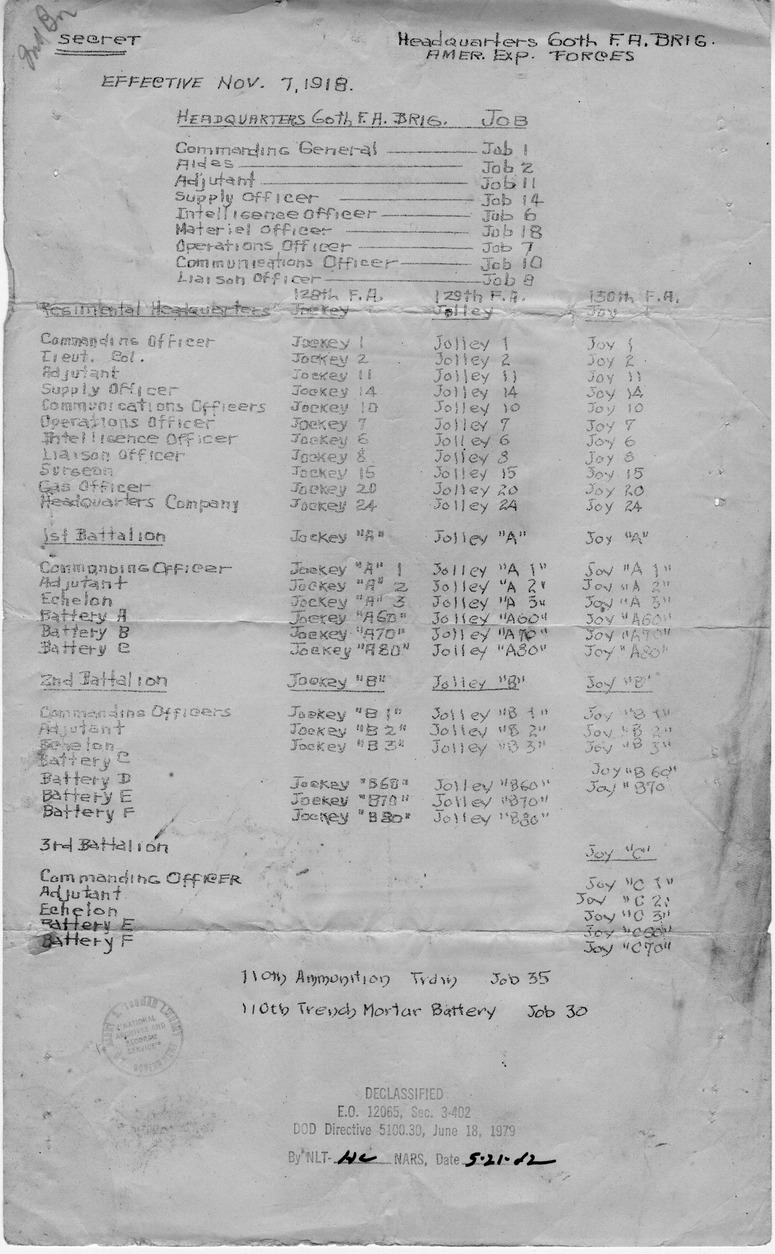 2nd Bn
Secret
Headquarters 60th F.A. BRIG.
AMER. EXP. FORCES
EFFECTIVE NOV. 7, 1918.
HEADQUARTERS 60th F.A. BRIG. JOB
Commanding General Job 1
Aides Job 2
Adjutant Job 11
Supply Officer Job 14
Intelligence Officer Job 6
Materiel Officer Job 18
Operations Officer Job 7
Communications Officer Job 10
Liaison Officer Job 8
128th F.A. 129th F.A. 130th F.A.
Regimental Headquarters Jockey Jolley Joy
Commanding Officer Jockey 1 Jolley 1 Joy 1
Lieut. Col. Jockey 2 Jolley 2 Joy 2
Adjutant Jockey 11 Jolley 11 Joy 11
Supply Officer Jockey 14 Jolley 14 Joy 14
Communications Officers Jockey 10 Jolley 10 Joy 10
Operations Officer Jockey 7 Jolley 7 Joy 7
Intelligence Officer Jockey 6 Jolley 6 Joy 6
Liaison Officer Jockey 8 Jolley 8 Joy 8
Surgeon Jockey 15 Jolley 15 Joy 15
Gas Officer Jockey 20 Jolley 20 Joy 20
Headquarters Company Jockey 24 Jolley 24 Joy 24
1st Battalion Jockey "A" Jolley "A" Joy "A"
Commanding Officer Jockey "A" 1 Jolley "A 1" Joy "A 1"
Adjutant Jockey "A" 2 Jolley "A 2" Joy "A 2"
Echelon Jockey "A" 3 Jolley "A 3" Joy "A 3"
Battery A Jockey "A60" Jolley "A60" Joy "A60"
Battery B Jockey "A70" Jolley "A70" Joy "A70"
Battery C Jockey "A80" Jolley "A80" Joy "A80"
2nd Battalion Jockey "B" Jolley "B" Joy "B"
Commanding Officers Jockey "B 1" Jolley "B 1" Joy "B 1"
Adjutant Jockey "B 2" Jolley "B 2" Joy "B 2"
Echelon Jockey "B 3" Jolley "B 3" Joy "B 3"
Battery C Joy "B 60"
Battery D Jockey "B60" Jolley "B60" Joy "B70
Battery E Jockey "B70" Jolley "B70"
Battery F Jockey "B80" Jolley "B80"
3rd Battalion Joy "C"
Commanding OFFICER Joy "C 1"
Adjutant Joy "C 2"
Echelon Joy "C 3"
Battery E Joy "C60"
Battery F Joy "C70"
110th Ammunition Train Job 35
110th Trench Mortar Battery Job 30
NATIONAL
ARCHIVES AND
RECORDS
SERVICE
DECLASSIFIED
E.O. 12065, Sec. 3-402
DOD Directive 5100.30, June 18, 1979
By NLT- HC NARS, Date 5-21-82